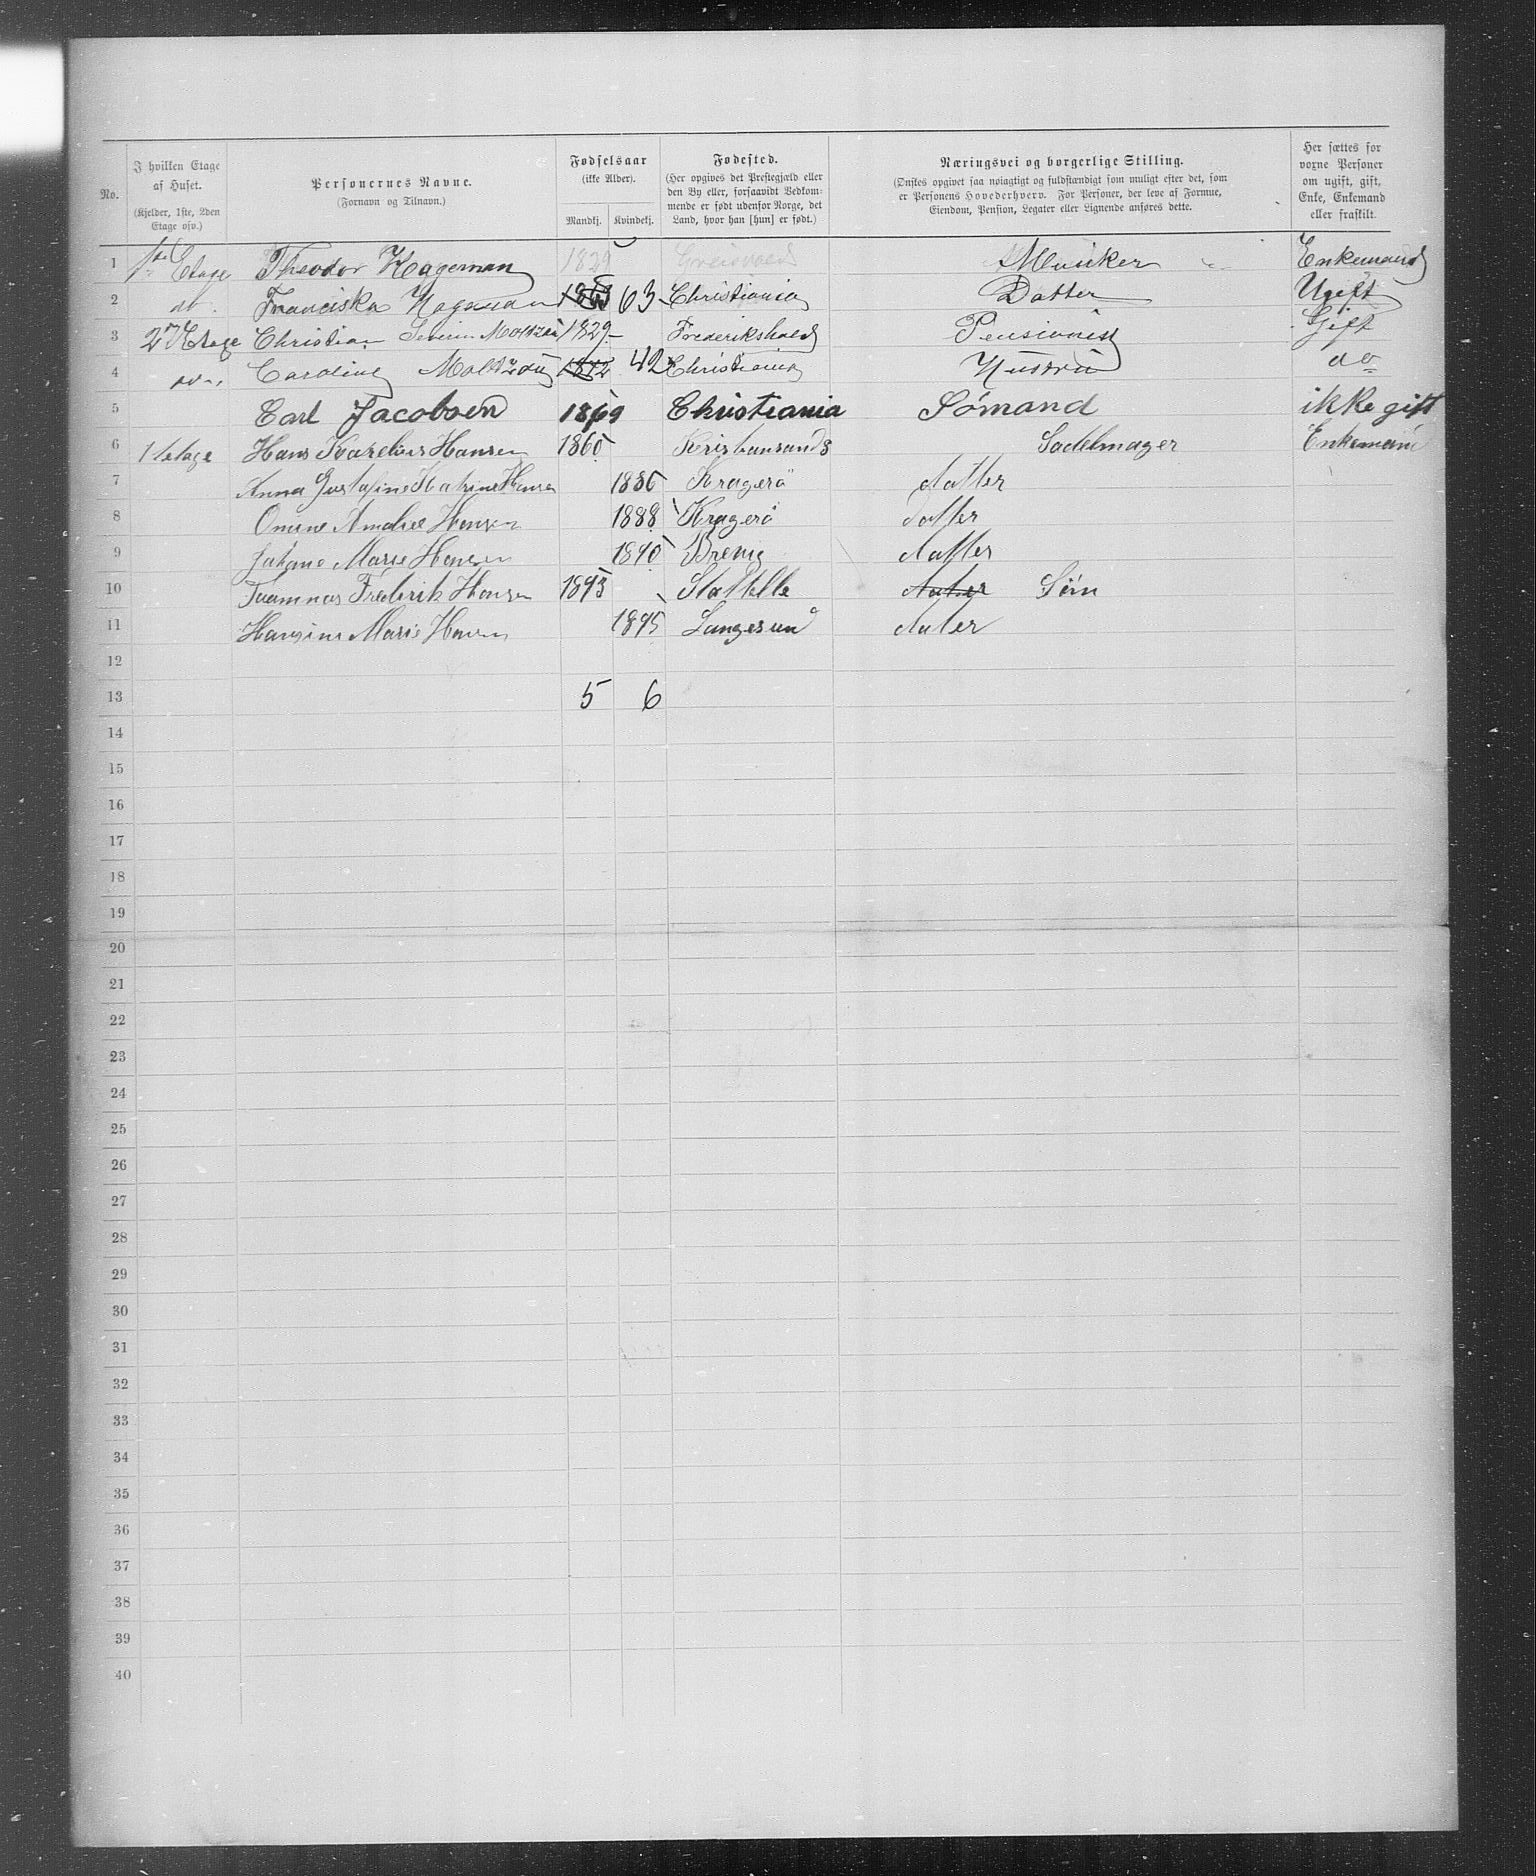 No. | I hvilken Etage af Huset. (Kjelder, 1ste, 2den Etage osv.) | Personernes Navne. (Fornavn og Tilnavn.) | Fødselsaar (ikke Alder). Mandkj. | Kvindekj. | Fødested. (Her opgives det Prestegjæld eller den By eller, forsaavidt Vedkommende er født udenfor Norge, det Land, hvor han [hun] er født.) | Næringsvei og borgerlige Stilling. (Ønskes opgivet saa nøiagtigt og fuldstændigt som muligt efter det, som er Personens Hovederhverv. For Personer, der leve af Formue, Eiendom, Pension, Legater eller Lignende anføres dette. | Her sættes for voxne Personer om ugift, gift, Enke, Enkemand eller fraskilt.
1 | 1ste Etage | Theodor Hageman | 1829 | | Greisvald | Musiker | Enkemand
2 | do | Franciska Hageman | 1863 | 63 | Christiania | Datter | Ugift
3 | 2n Etage | Christian Severin Moltzau | 1829 | | Frederikshald | Pensionist | Gift
4 | do | Caroline Moltzau | 1842 | 42 | Christiania | Hustru | do
5 | | Carl Jacobsen | 1869 | | Christiania | Sømand | ikke gift
6 | 1 etage | Hans Hansen | 1860 | | Kristiansands | Sadelmager | Enkemann
7 | | Anna Gustafine Katrine Hansen | | 1886 | Kragerö | datter
8 | | Amalie Hansen | | 1888 | Kragerö | datter
9 | | Marie Hansen | | 1890 | Brevig | datter
10 | | Fredrik Hansen | 1893 | | Stathelle | dater Søn
11 | | Hansine Marie Hansen | | 1895 | Langesund | dater
12
13 | | | 5 | 6
14
15
16
17
18
19
20
21
22
23
24
25
26
27
28
29
30
31
32
33
34
35
36
37
38
39
40